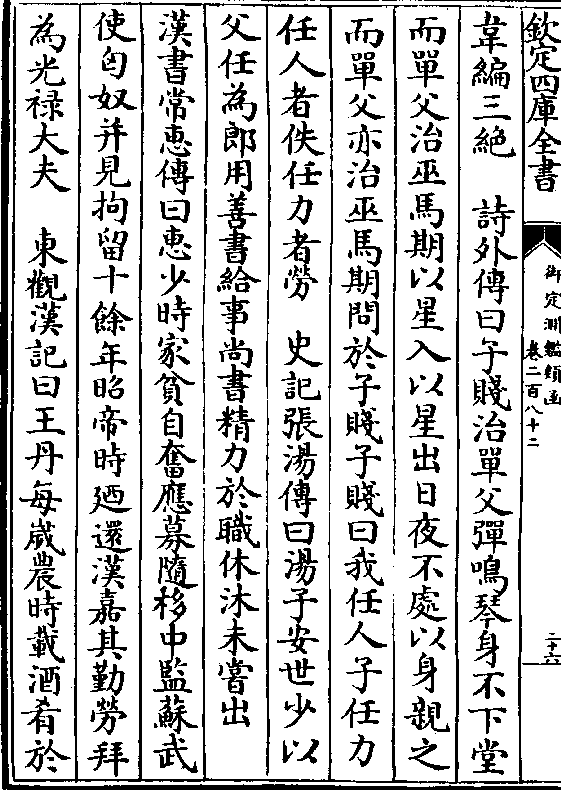 欽定四庫全書
御定淵鑑類函
卷二百八十二
二十六
韋編三絶　詩外傳曰子賤治單父彈鳴琴身不下堂
而單父治巫馬期以星入以星出日夜不處以身親之
而單父亦治巫馬期問於子賤子賤曰我任人子任力
任人者佚任力者勞　史記張湯傳曰湯子安世少以
父任為郎用善書給事尚書精力於職休沐未嘗出
漢書常惠傳曰惠少時家貧自奮應募隨栘中監蘇武
使匈奴并見拘留十餘年昭帝時廼還漢嘉其勤勞拜
為光禄大夫　東觀漢記曰王丹每歲農時載酒肴於